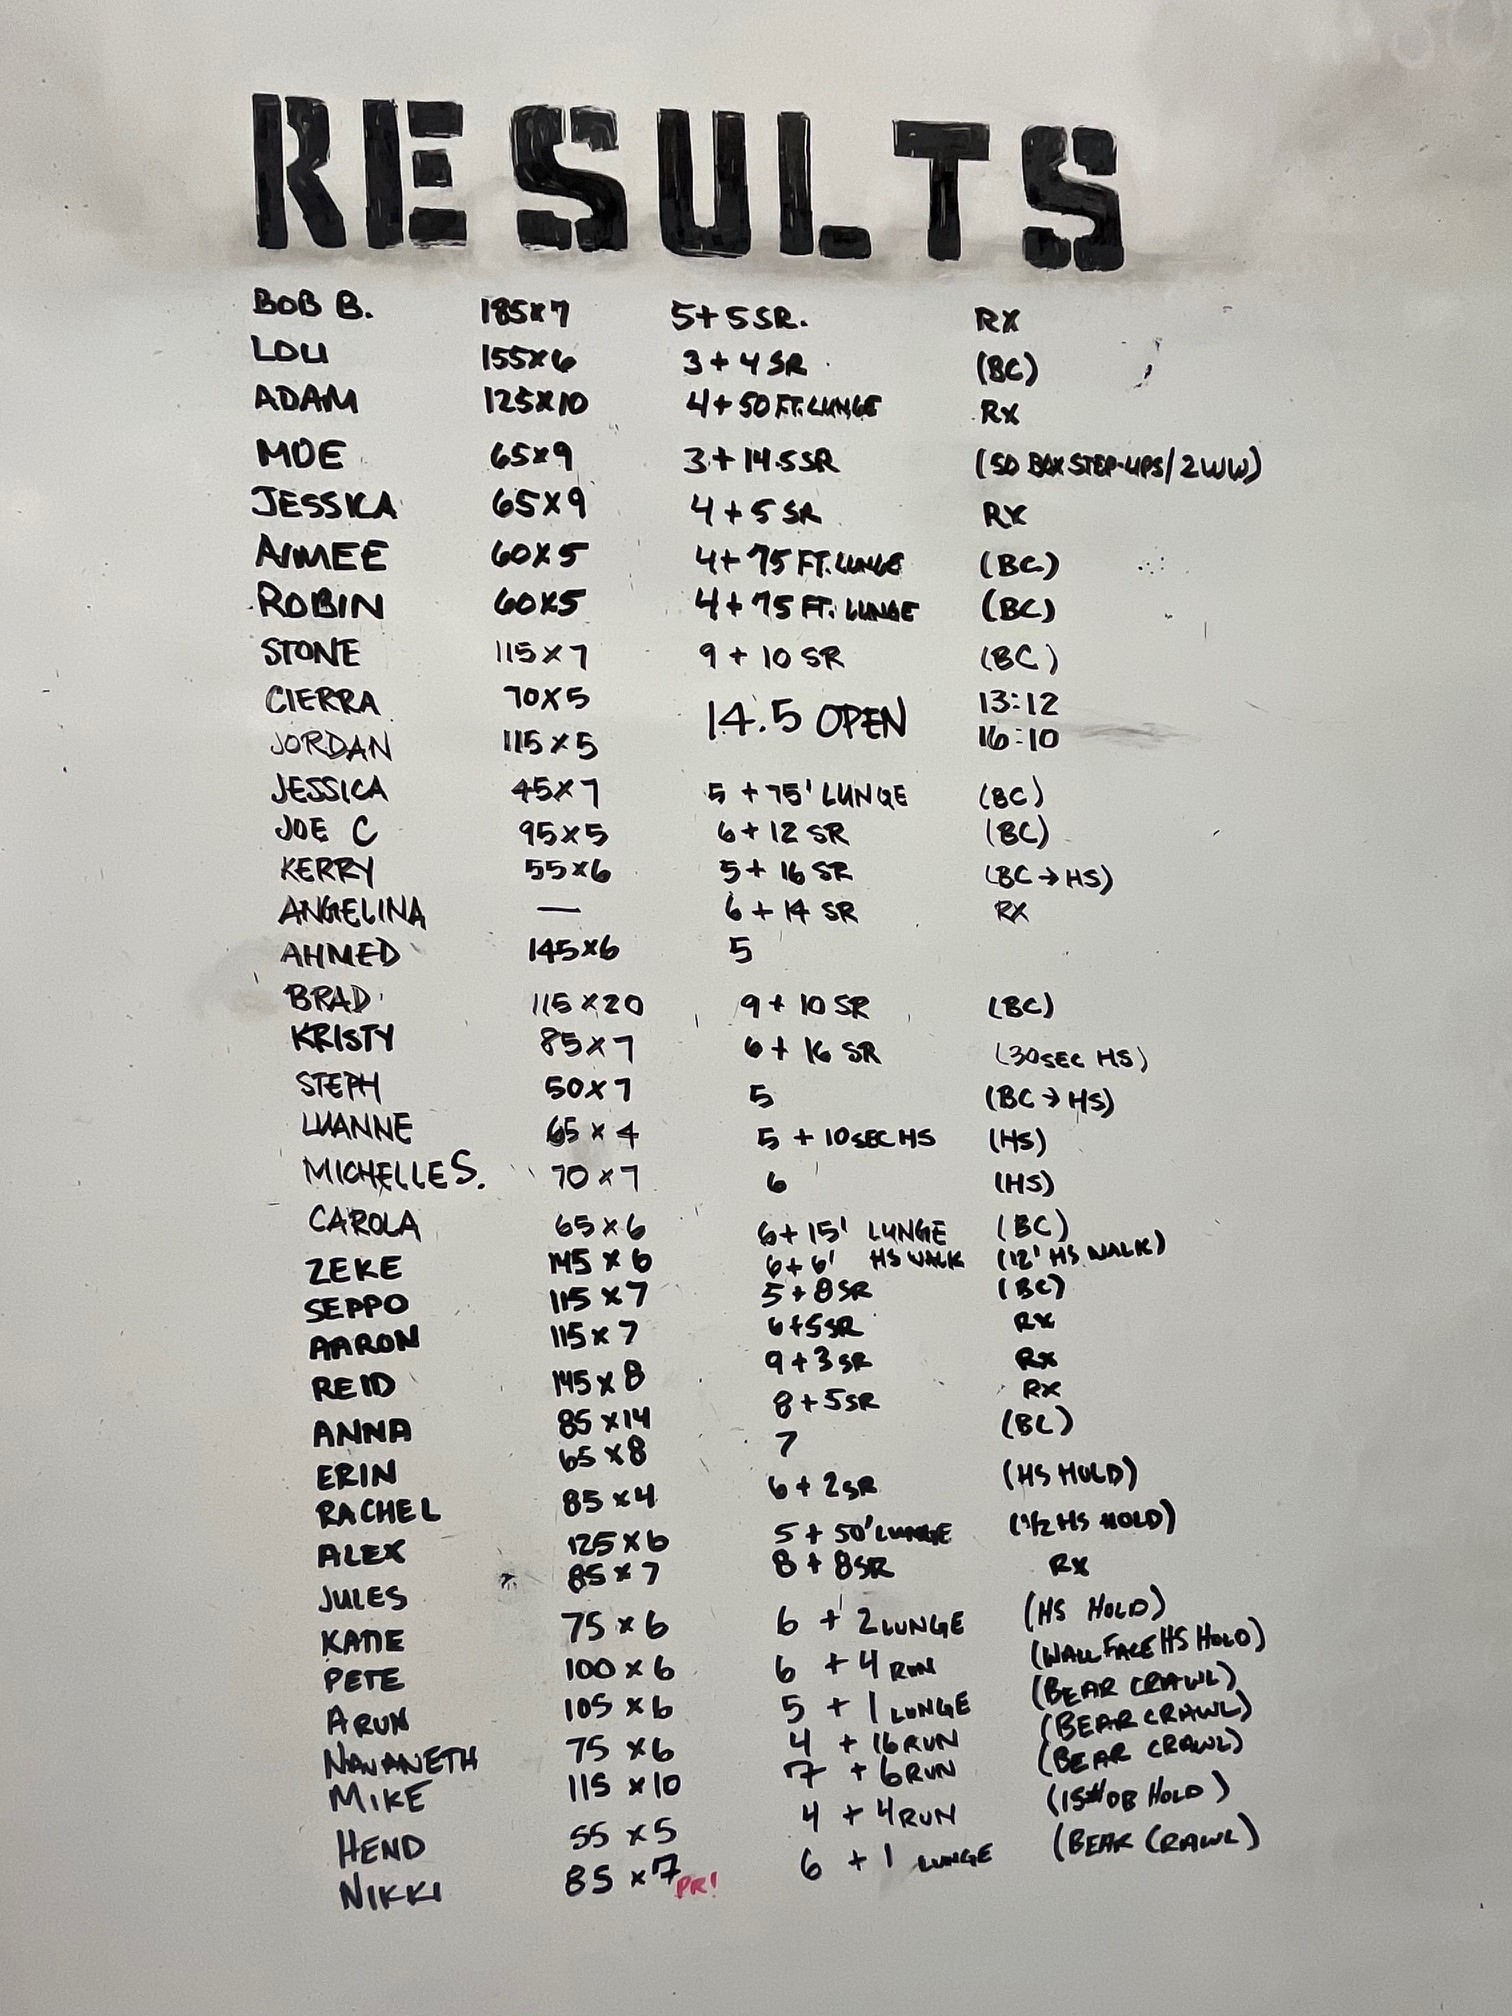 RESULTS
BOB B. 185x7 5+5SR. RX
LOU 155x6 3+4SR (BC)
ADAM 125x10 4+50FT.LUNGE RX
MOE 65x9 3+14.5SR (50 BOX STEP-UPS/2WW)
JESSICA 65x9 4+5SR RX
AIMEE 60x5 4+75FT.LUNGE (BC)
ROBIN 60x5 4+75FT.LUNGE (BC)
STONE 115x7 9+10 SR (BC)
CIERRA 70x5 14.5 OPEN 13:12
JORDAN 115x5 16:10
JESSICA 45x7 5+75' LUNGE (BC)
JOE C 95x5 6+12 SR (BC)
KERRY 55x6 5+16 SR (BC→HS)
ANGELINA — 6+14 SR RX
AHMED 145x6 5
BRAD 115x20 9+10 SR (BC)
KRISTY 85x7 6+16 SR (30SEC HS)
STEPH 50x7 5 (BC→HS)
LUANNE 65x4 5+10SEC HS (HS)
MICHELLE S. 70x7 6 (HS)
CAROLA 65x6 6+15' LUNGE (BC)
ZEKE 145x6 6+6' HS WALK (12' HS WALK)
SEPPO 115x7 5+8SR (BC)
AARON 115x7 6+5SR RX
REID 145x8 9+3SR RX
ANNA 85x14 8+5SR RX
ERIN 65x8 7 (BC)
RACHEL 85x4 6+2SR (HS HOLD)
ALEX 125x6 5+50' LUNGE (1/2 HS HOLD)
JULES 85x7 8+8SR RX
KATIE 75x6 6+2LUNGE (HS HOLD)
PETE 100x6 6+4RUN (WALL FACE HS HOLD)
ARUN 105x6 5+1LUNGE (BEAR CRAWL)
NAVANETH 75x6 4+16RUN (BEAR CRAWL)
MIKE 115x10 7+6RUN (BEAR CRAWL)
HEND 55x5 4+4RUN (15# DB HOLD)
NIKKI 85x7 PR! 6+1 LUNGE (BEAR CRAWL)